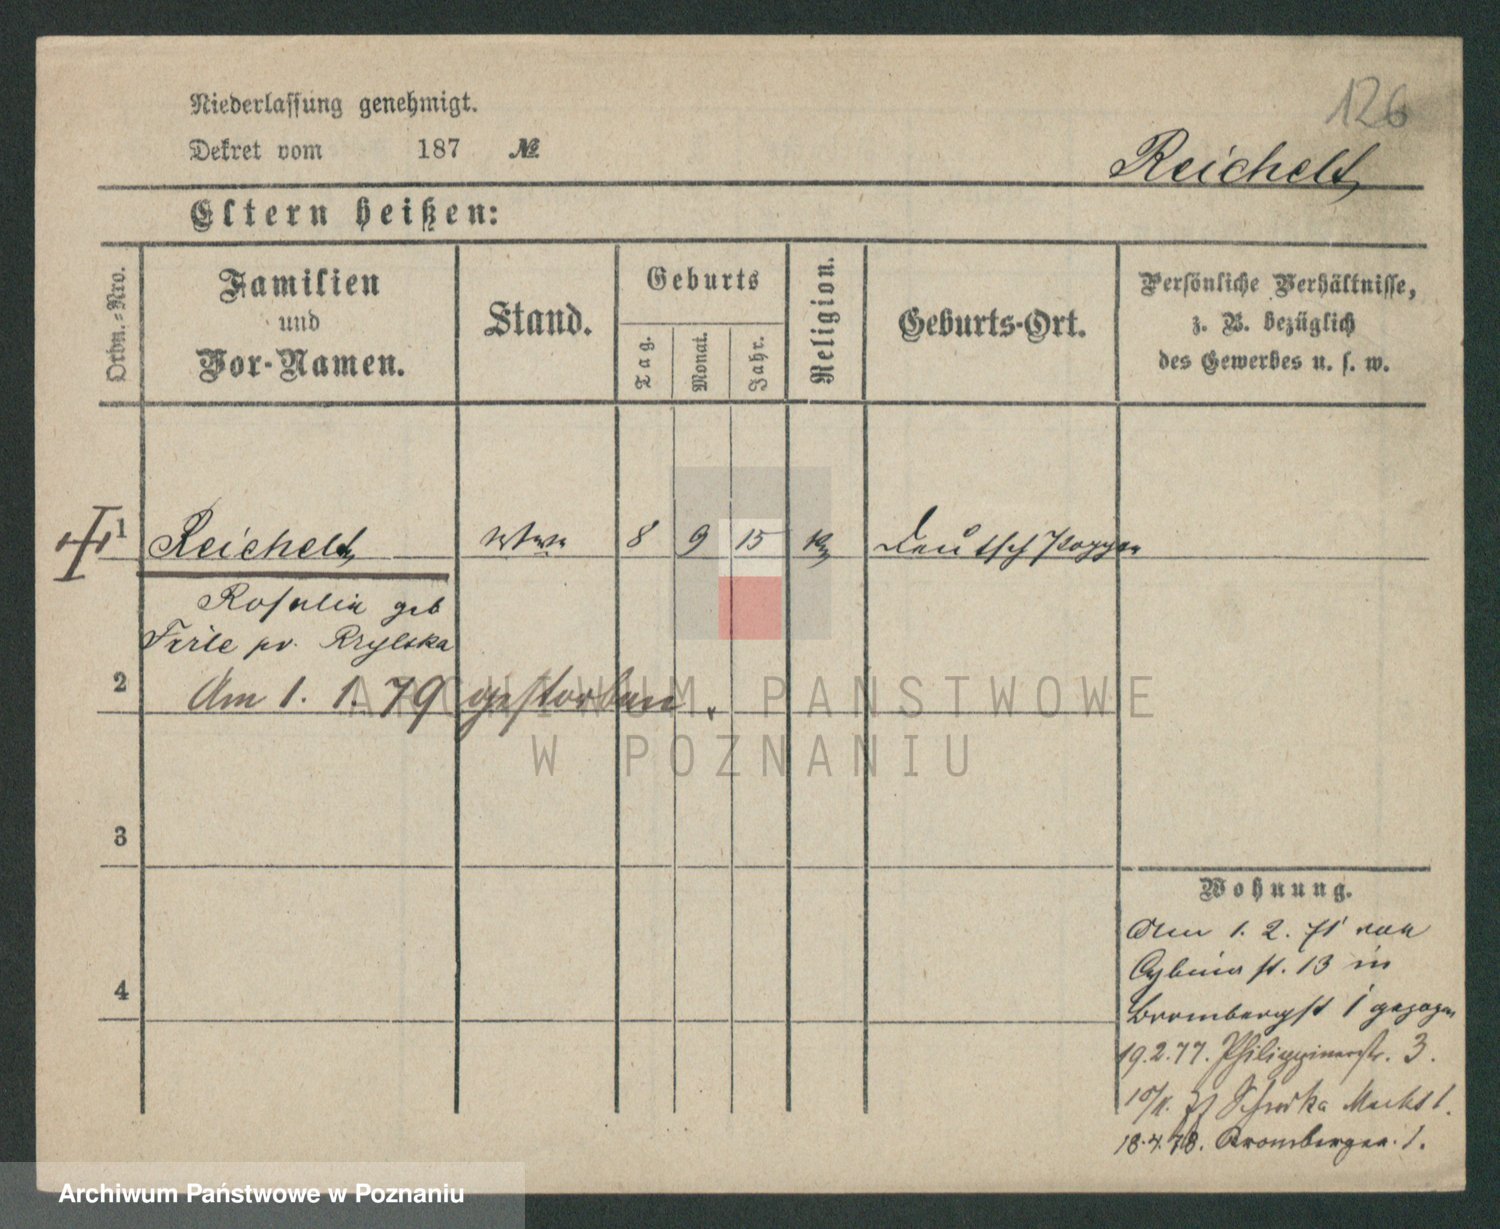 126
Niederlassung genehmigt.
Dekret vom 187 №
Reichelt,
Eltern heißen:
Ordn.-Nro.
Familien
und
Vor-Namen.
Stand.
Geburts
Tag.
Monat.
Jahr.
Religion.
Geburts-Ort.
Persönliche Verhältnisse,
z. B. bezüglich
des Gewerbes u. s. w.
1 Reichelt, Wwe 8 9 15 Deutsch Poppen
Rosalia geb
pr.
2 Am 1. 1. 79 gestorben.
3
4
Wohnung.
Am 1. 2. 71 von
Cybina st. 13 in
Brombergst 1 gezogen
19.2.77. Philippinerstr. 3.
Schrodka Markt 1.
18.4.78. Bromberger. 1.
ARCHIWUM PAŃSTWOWE
W POZNANIU
Archiwum Państwowe w Poznaniu